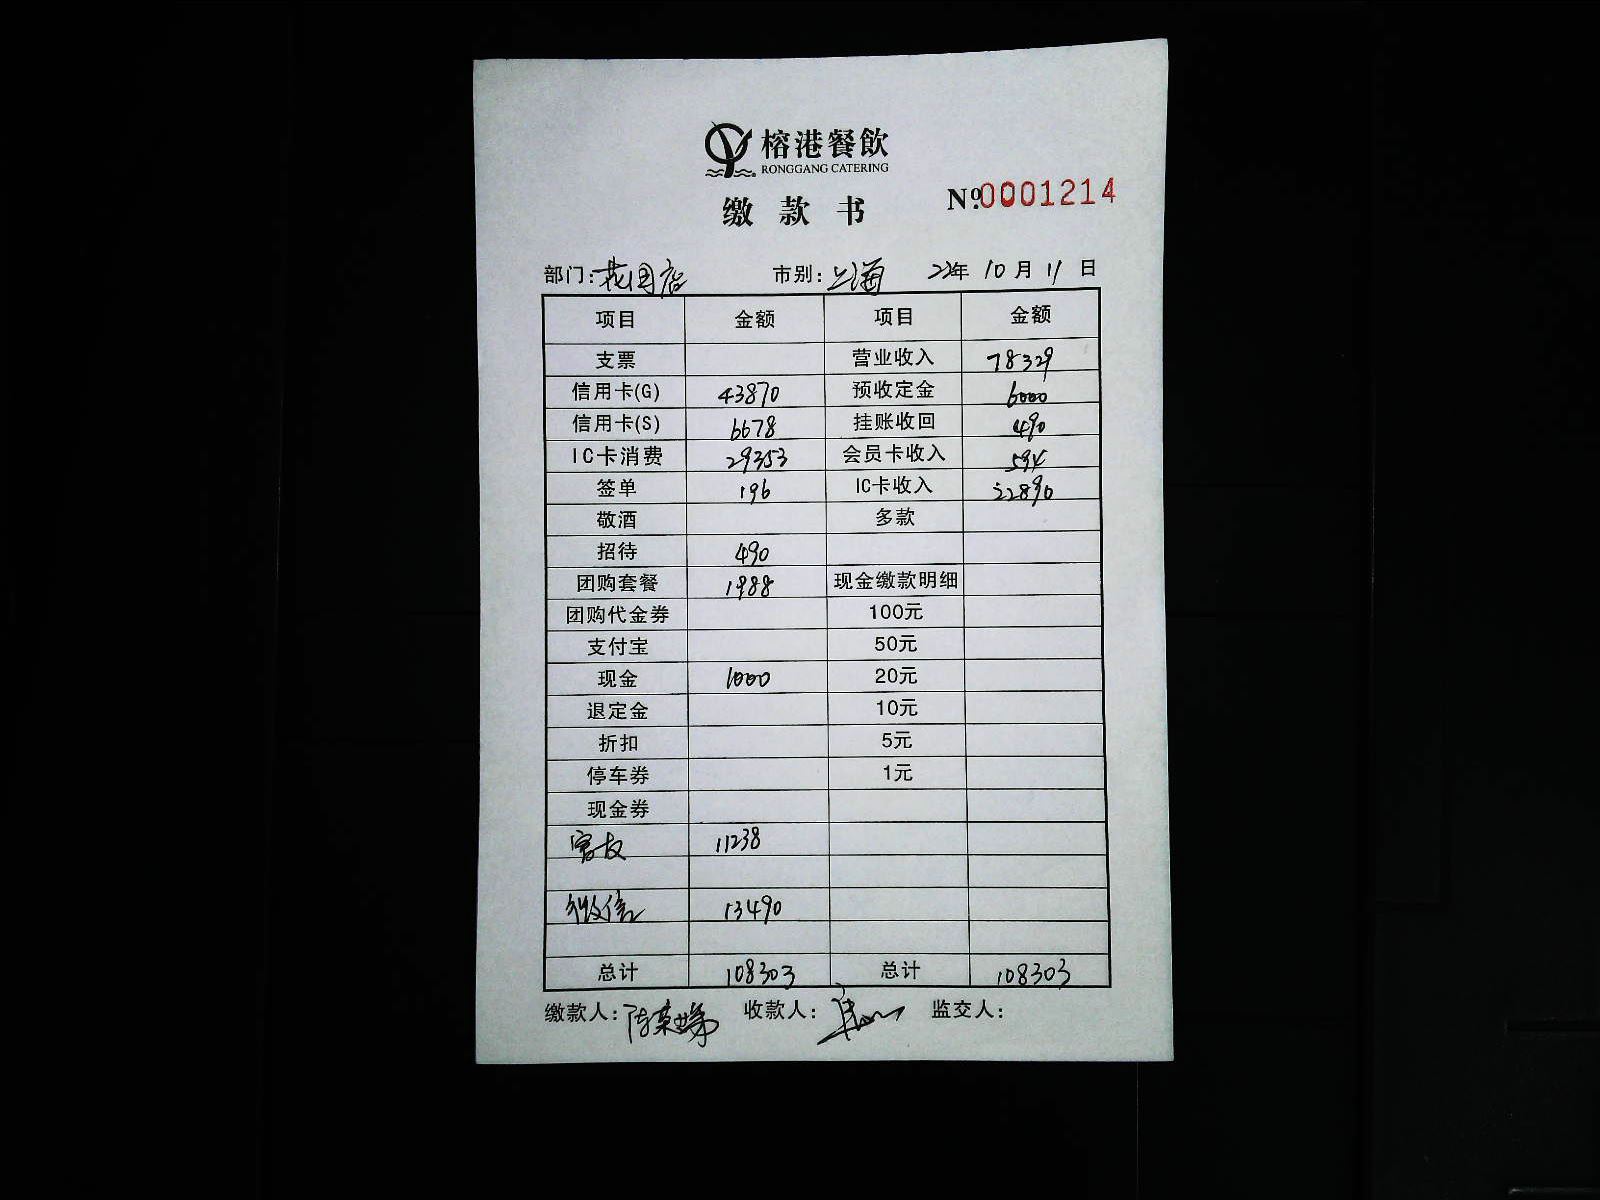 榕港餐飲
RONGGANG CATERING
缴款书
Nº 0001214
部门:花园店 市别:上海 22年 10月 11日
项目 金额 项目 金额
支票 营业收入 78329
信用卡(G) 43870 预收定金 6000
信用卡(S) 6678 挂账收回 490
IC卡消费 29353 会员卡收入 594
签单 196 IC卡收入 22890
敬酒 多款
招待 490
团购套餐 1988 现金缴款明细
团购代金券 100元
支付宝 50元
现金 1000 20元
退定金 10元
折扣 5元
停车券 1元
现金券
11238
微信 13490
总计 108303 总计 108303
缴款人: 收款人: 监交人: